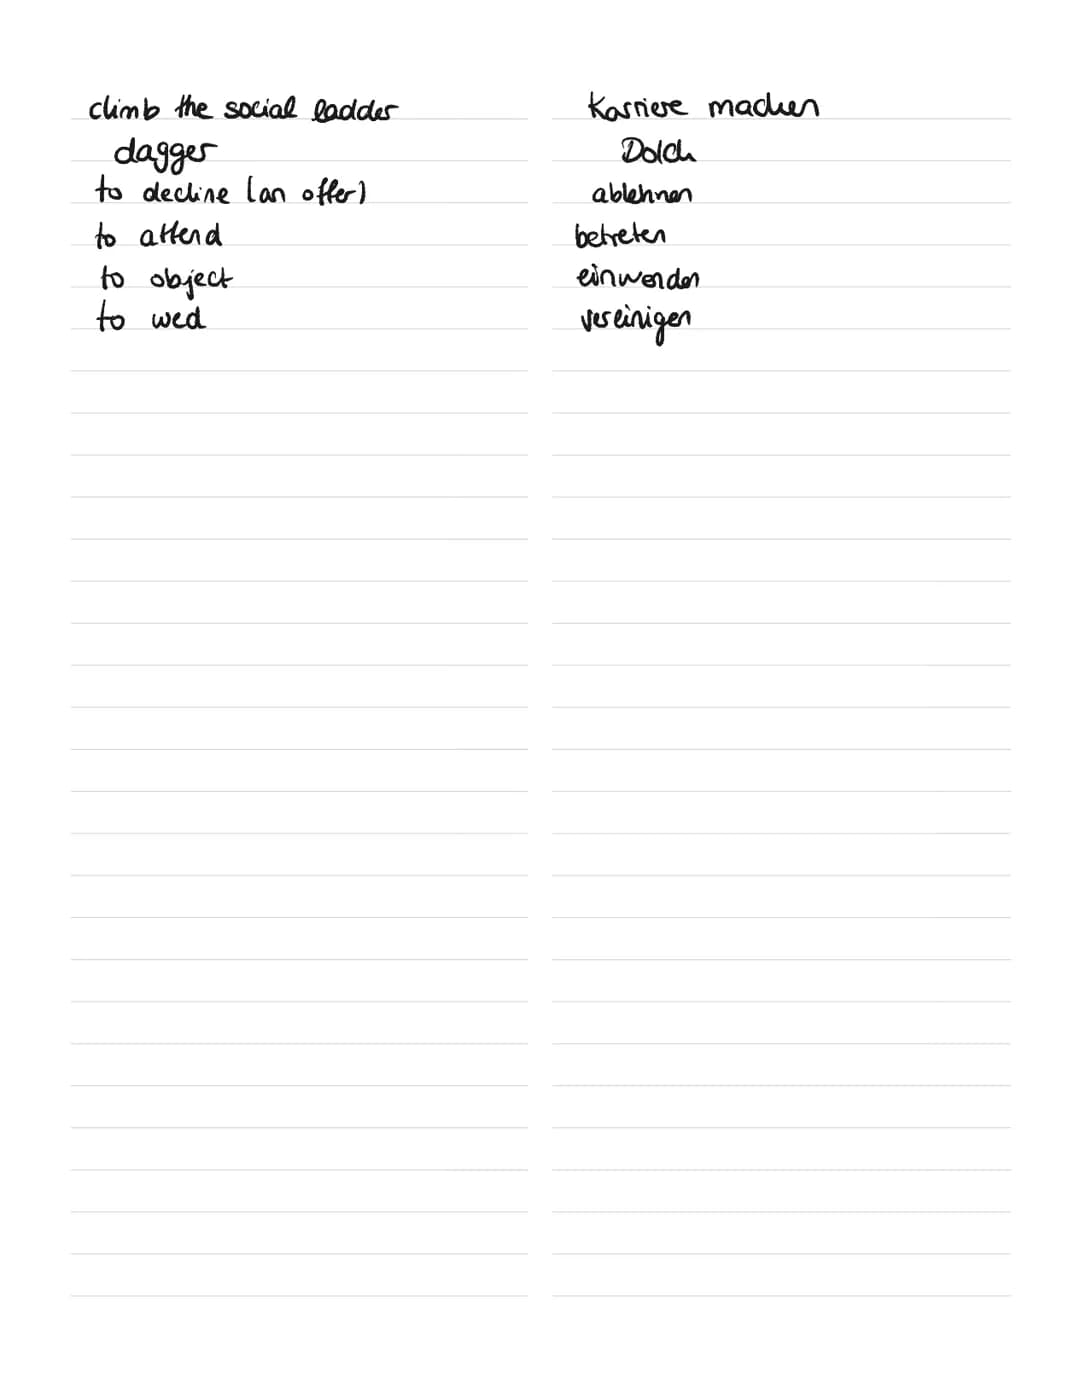 climb the social ladder Karriere machen
dagger Dolch
to decline (an offer) ablehnen
to attend betreten
to object einwenden
to wed vereinigen